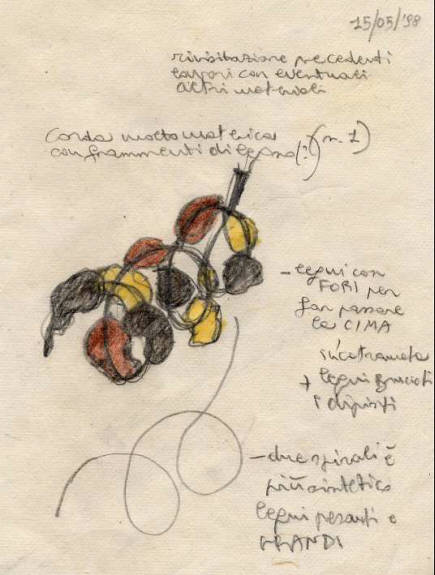 15/05/'98
rivisitazione precedenti
lavori con eventuali
altri materiali
Corda molto materica (n. 1)
con frammenti di legno (?)
- legni con
FORI per
far passare
la CIMA
incatramata
+ legni bruciati
e dipinti
- due spirali è
più sintetico
legni pesanti e
GRANDI